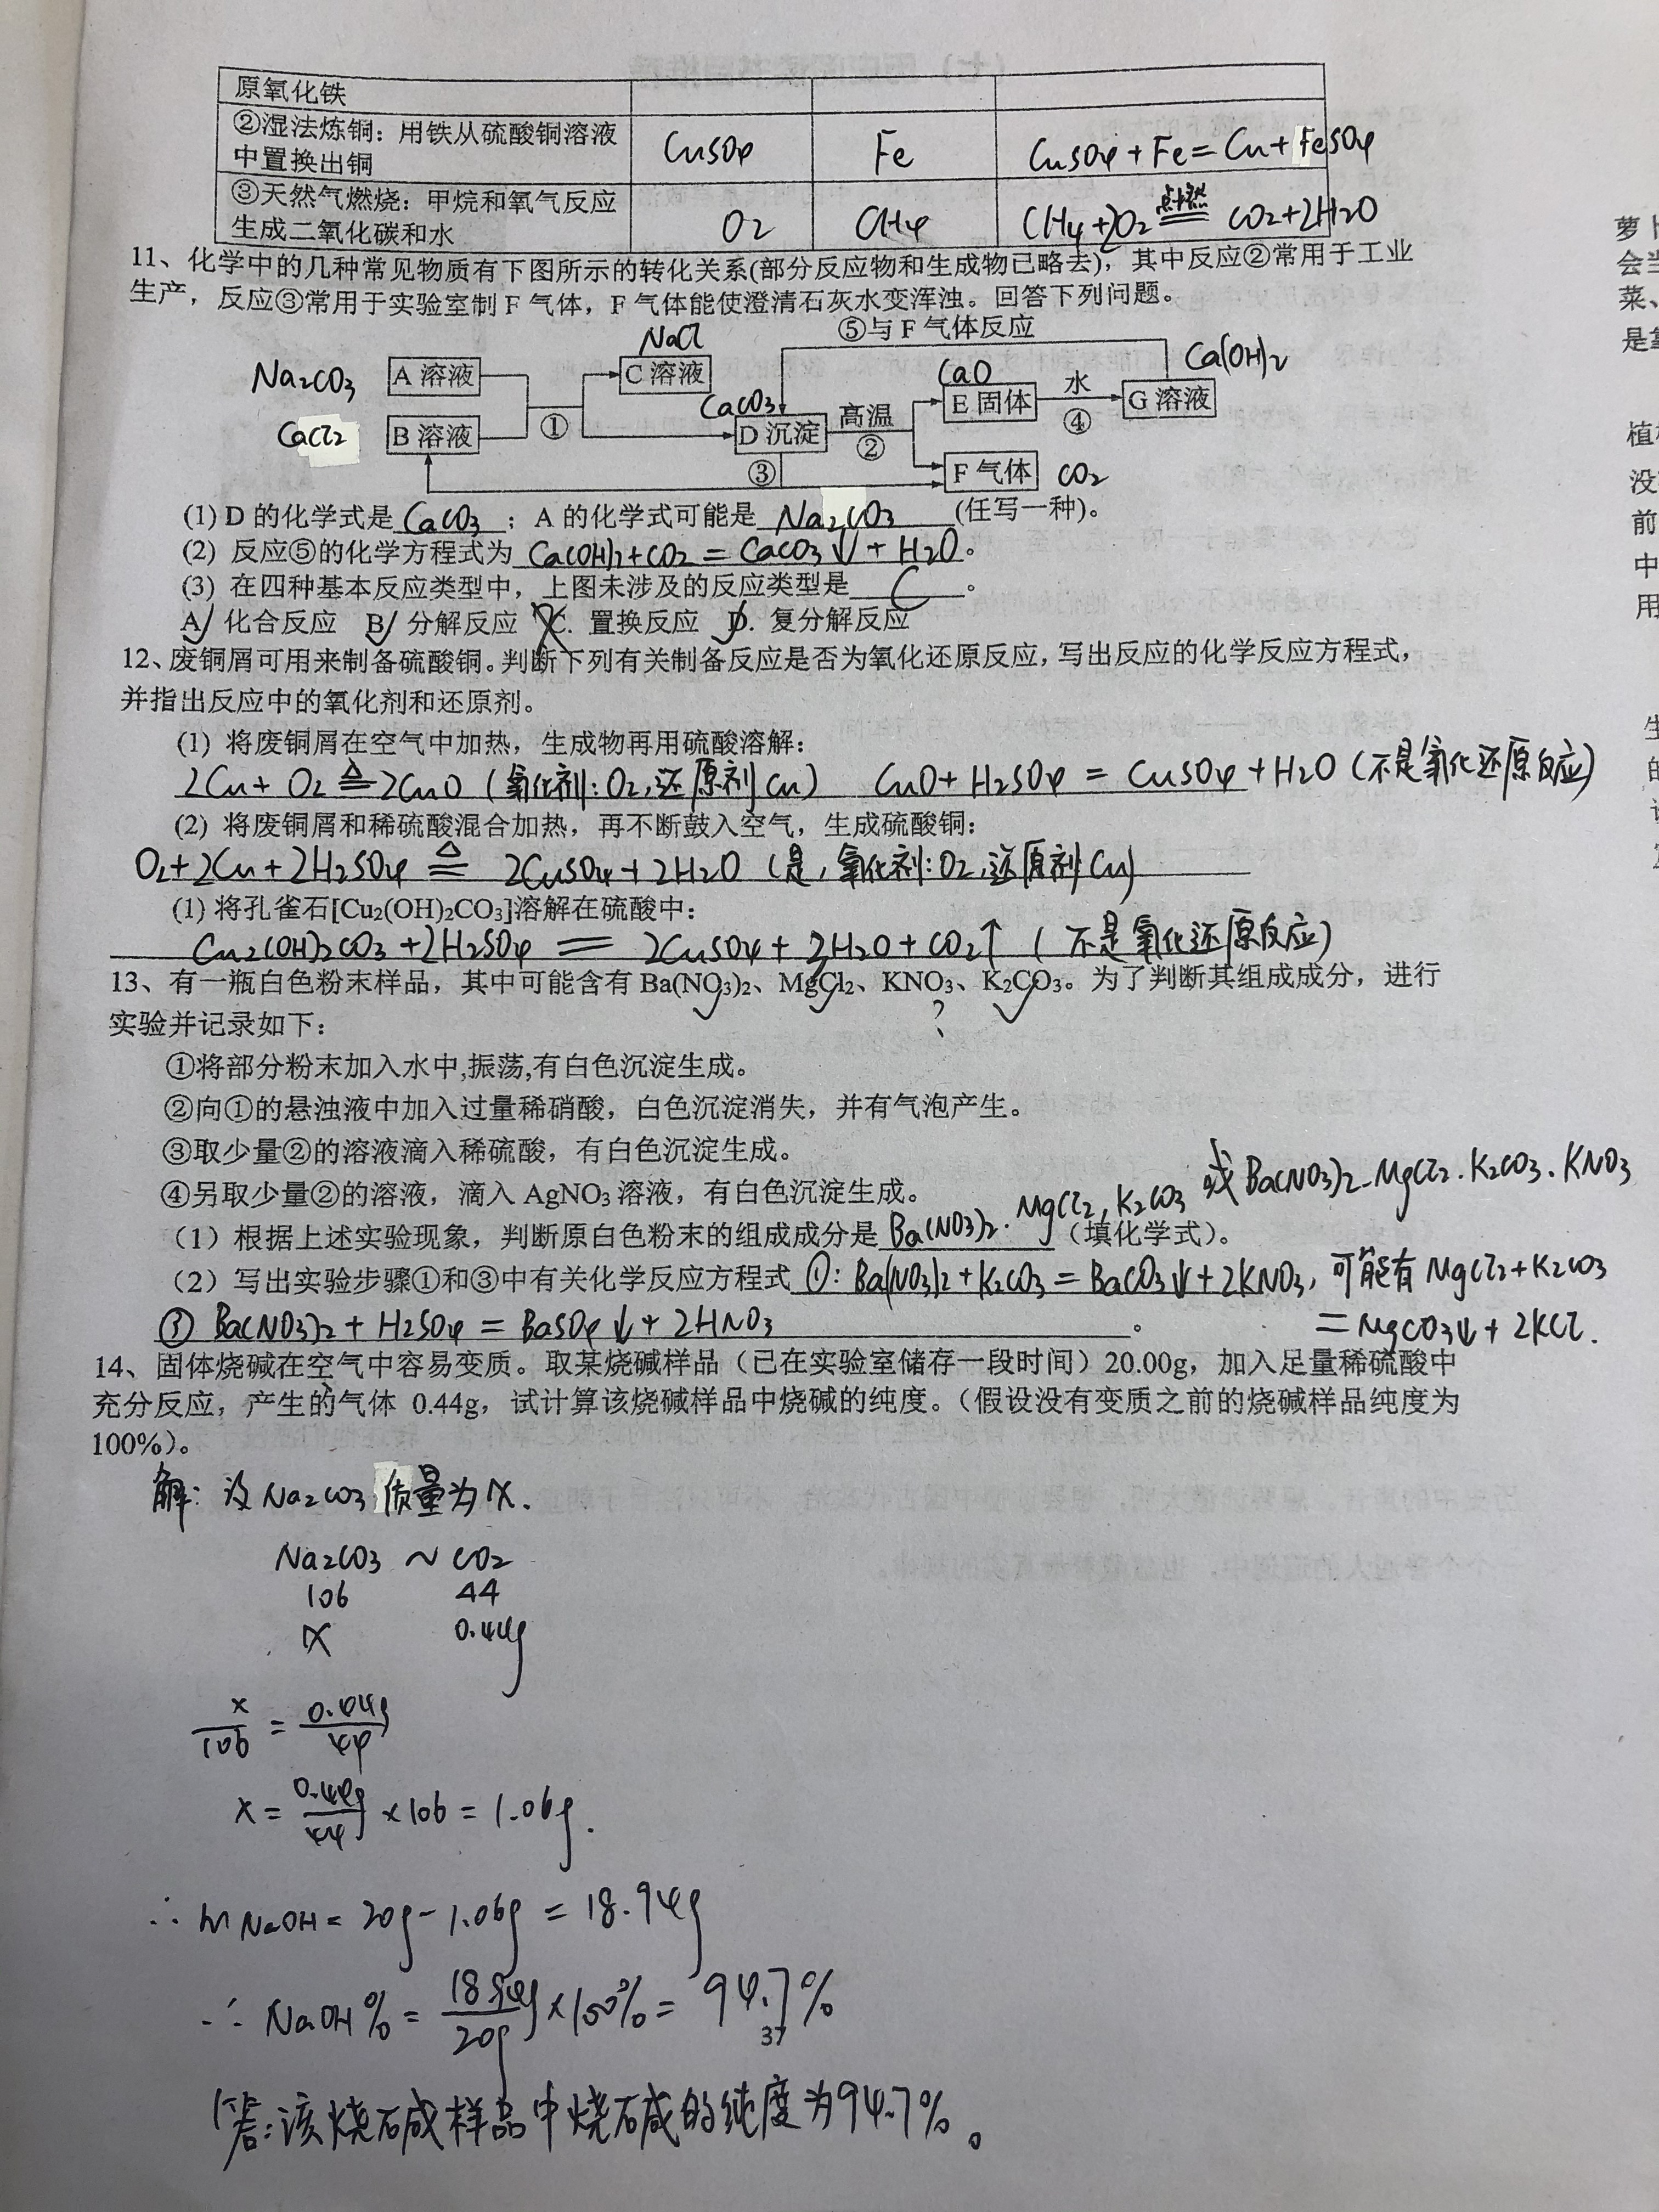 原氧化铁
②湿法炼铜：用铁从硫酸铜溶液中置换出铜 CuSO4 Fe CuSO4+Fe=Cu+FeSO4
③天然气燃烧：甲烷和氧气反应生成二氧化碳和水 O2 CH4 CH4+2O2 点燃 CO2+2H2O
11、化学中的几种常见物质有下图所示的转化关系(部分反应物和生成物已略去)，其中反应②常用于工业
生产，反应③常用于实验室制 F 气体，F 气体能使澄清石灰水变浑浊。回答下列问题。
⑤与 F 气体反应
NaCl
Na2CO3 A 溶液 C 溶液 CaCO3 高温 CaO E 固体 水 Ca(OH)2 G 溶液
CaCl2 B 溶液 ① D 沉淀 ② ④
③ F 气体 CO2
(1) D 的化学式是 CaCO3 ；A 的化学式可能是 Na2CO3 (任写一种)。
(2) 反应⑤的化学方程式为 Ca(OH)2+CO2=CaCO3↓+H2O。
(3) 在四种基本反应类型中，上图未涉及的反应类型是 C 。
A. 化合反应 B. 分解反应 C. 置换反应 D. 复分解反应
12、废铜屑可用来制备硫酸铜。判断下列有关制备反应是否为氧化还原反应，写出反应的化学反应方程式，
并指出反应中的氧化剂和还原剂。
(1) 将废铜屑在空气中加热，生成物再用硫酸溶解：
2Cu+O2≜2CuO（氧化剂：O2，还原剂Cu） CuO+H2SO4=CuSO4+H2O（不是氧化还原反应）
(2) 将废铜屑和稀硫酸混合加热，再不断鼓入空气，生成硫酸铜：
O2+2Cu+2H2SO4≜2CuSO4+2H2O（是，氧化剂：O2，还原剂Cu）
(1) 将孔雀石[Cu2(OH)2CO3]溶解在硫酸中：
Cu2(OH)2CO3+2H2SO4=2CuSO4+3H2O+CO2↑（不是氧化还原反应）
13、有一瓶白色粉末样品，其中可能含有 Ba(NO3)2、MgCl2、KNO3、K2CO3。为了判断其组成成分，进行
?
实验并记录如下：
①将部分粉末加入水中,振荡,有白色沉淀生成。
②向①的悬浊液中加入过量稀硝酸，白色沉淀消失，并有气泡产生。
③取少量②的溶液滴入稀硫酸，有白色沉淀生成。
④另取少量②的溶液，滴入 AgNO3 溶液，有白色沉淀生成。
（1）根据上述实验现象，判断原白色粉末的组成成分是 Ba(NO3)2、MgCl2、K2CO3 或Ba(NO3)2、MgCl2、K2CO3、KNO3（填化学式）。
（2）写出实验步骤①和③中有关化学反应方程式 ①: Ba(NO3)2+K2CO3=BaCO3↓+2KNO3，可能有 MgCl2+K2CO3
=MgCO3↓+2KCl.
③ Ba(NO3)2+H2SO4=BaSO4↓+2HNO3 。
14、固体烧碱在空气中容易变质。取某烧碱样品（已在实验室储存一段时间）20.00g，加入足量稀硫酸中
充分反应，产生的气体 0.44g，试计算该烧碱样品中烧碱的纯度。（假设没有变质之前的烧碱样品纯度为
100%）。
解：设 Na2CO3 质量为 x.
Na2CO3 ~ CO2
106 44
x 0.44g
x/106 = 0.44g/44
x = 0.44g/44 ×106 = 1.06g.
∴ m NaOH = 20g-1.06g = 18.94g
∴ NaOH% = 18.94g/20g ×100% = 94.7%
37
答：该烧碱样品中烧碱的纯度为94.7%。
萝卜
会当
菜、
是
植
没
前
中
用
生
的